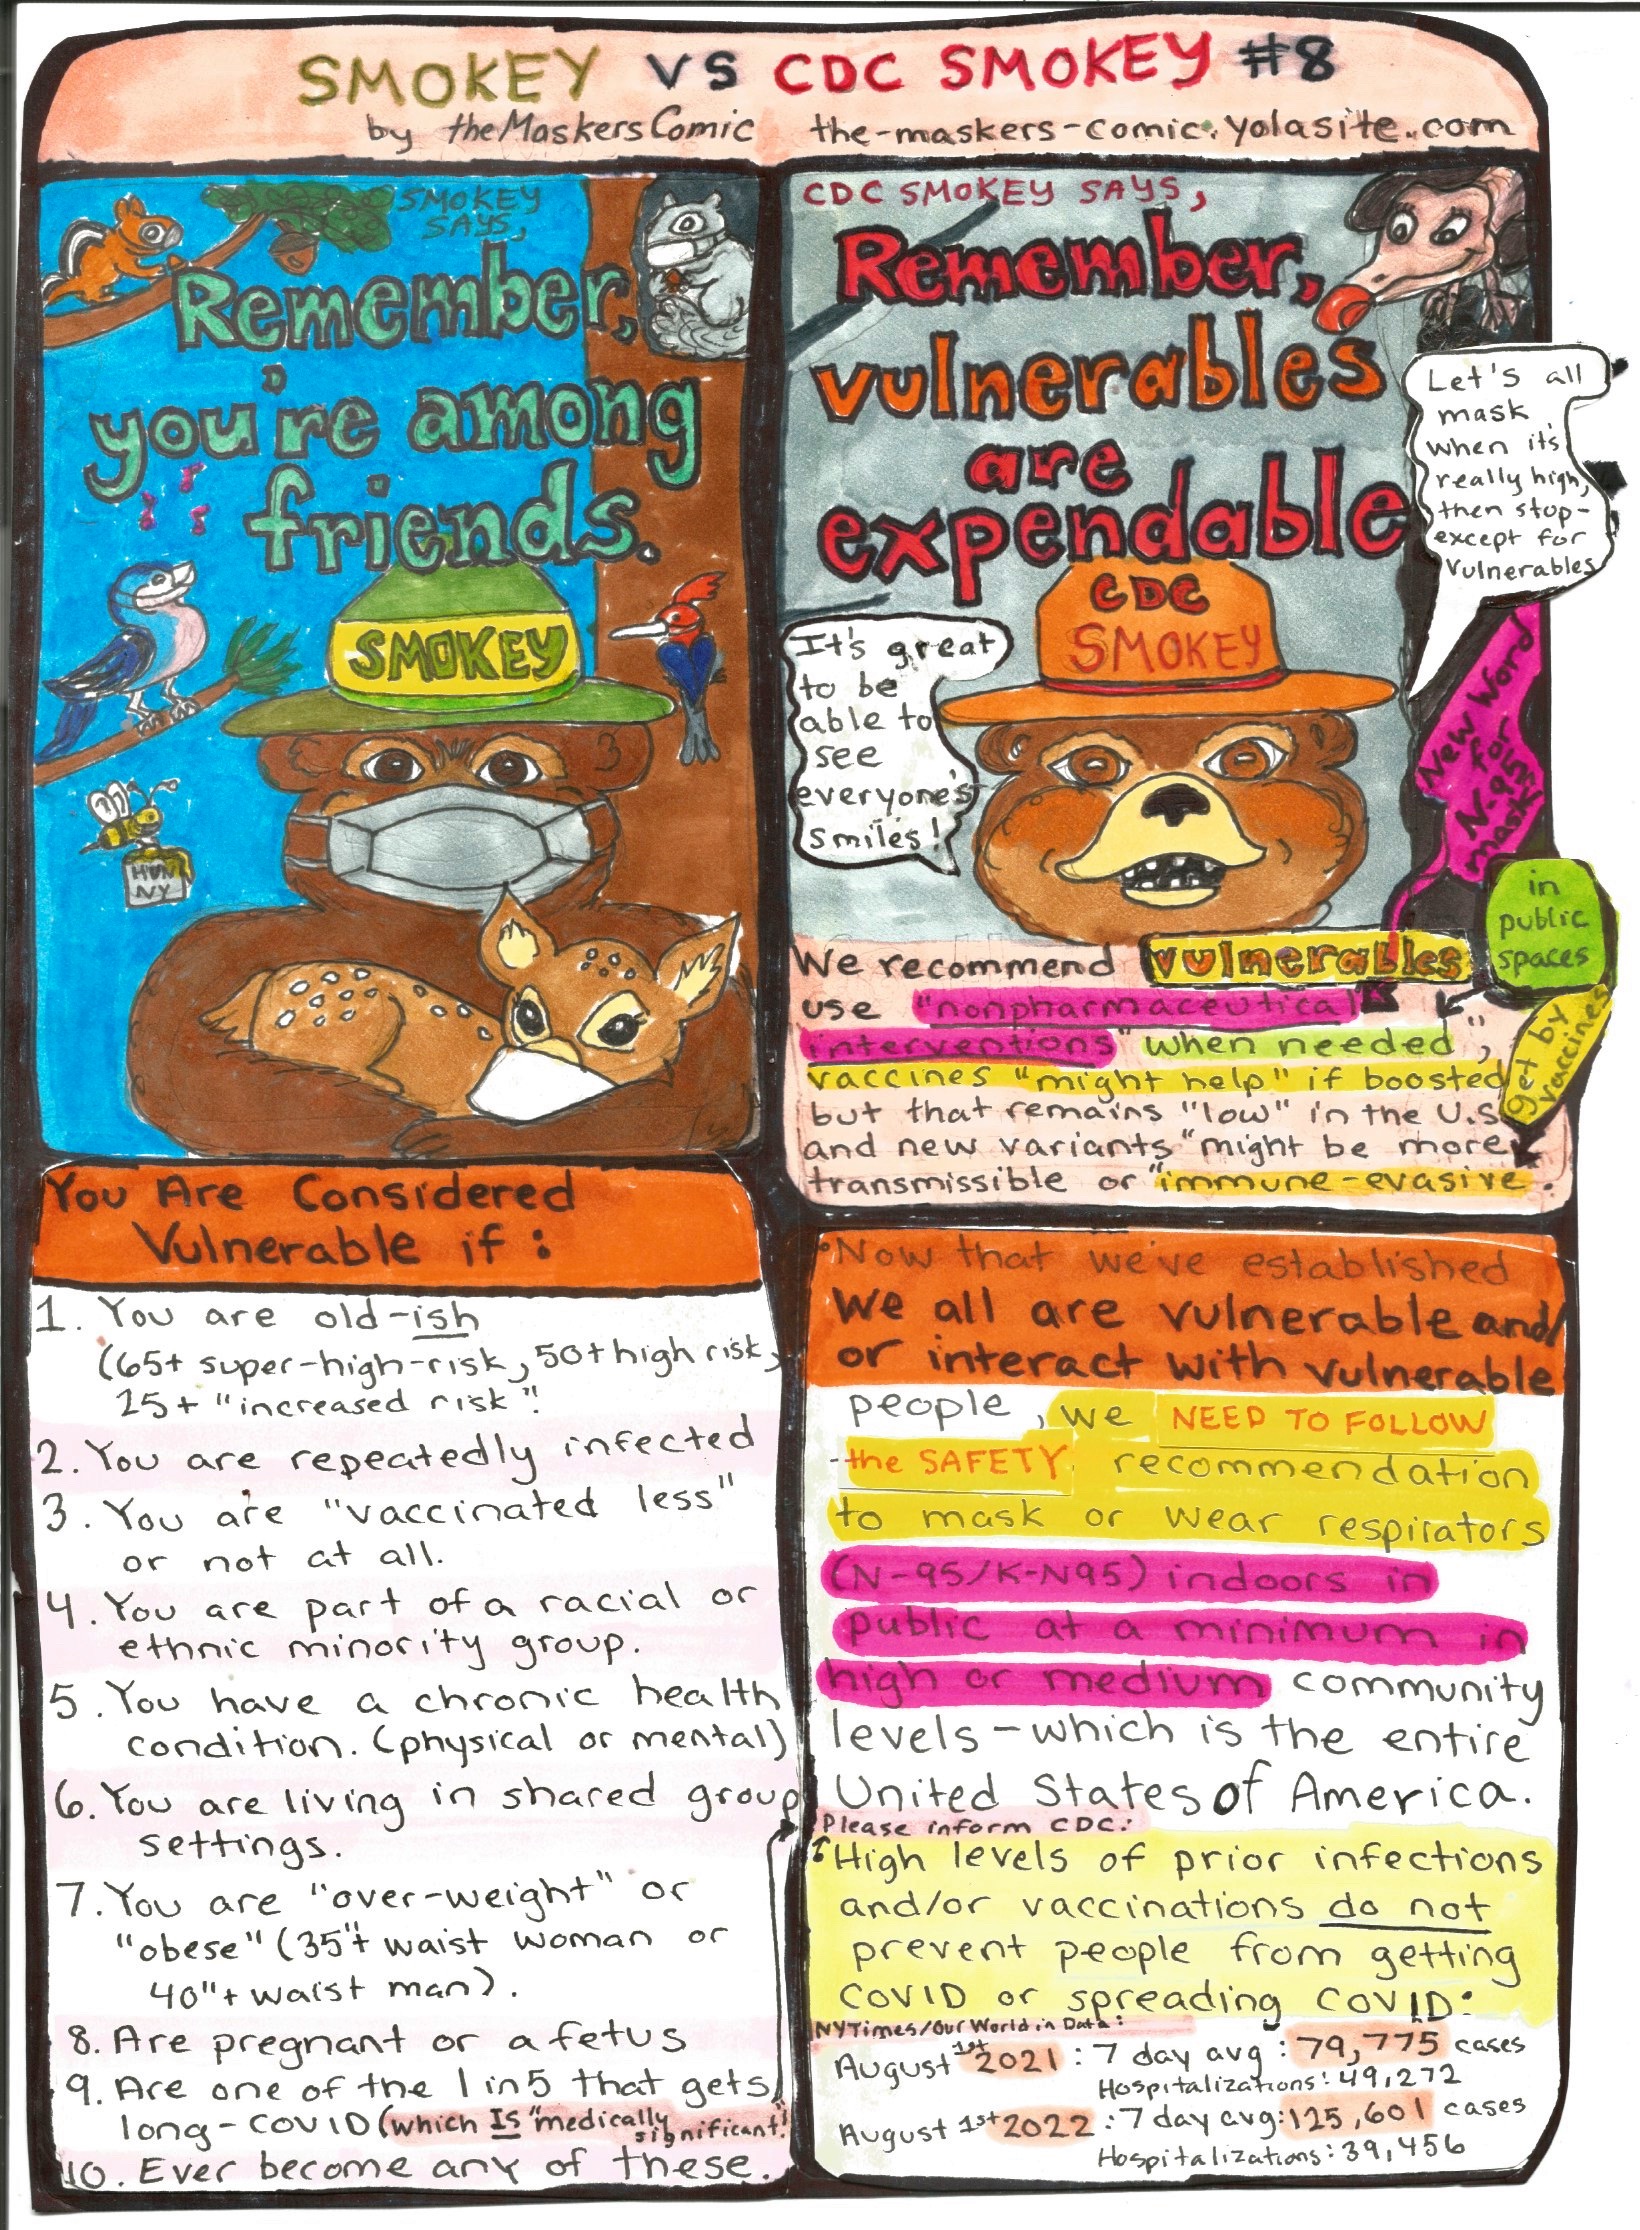 SMOKEY VS CDC SMOKEY #8
by theMaskersComic the-maskers-comic.yolasite.com
SMOKEY
SAYS,
Remember,
you're among
friends.
SMOKEY
HUN
NY
CDC SMOKEY SAYS,
Remember,
vulnerables
are
expendable
Let's all
mask
when it's
really high,
then stop-
except for
vulnerables
CDC
SMOKEY
It's great
to be
able to
see
everyone's
smiles!
New Word
for
N-95
mask
in
public
spaces
get by
vaccines
We recommend vulnerables
use "nonpharmaceutical
interventions" when needed",
vaccines "might help" if boosted
but that remains "low" in the U.S
and new variants "might be more
transmissible or "immune-evasive.
You Are Considered
Vulnerable if:
1. You are old-ish
(65+ super-high-risk, 50+ high risk,
25+ "increased risk".
2. You are repeatedly infected
3. You are "vaccinated less"
or not at all.
4. You are part of a racial or
ethnic minority group.
5. You have a chronic health
condition. (physical or mental)
6. You are living in shared group
settings.
7. You are "over-weight" or
"obese" (35"+ waist woman or
40"+ waist man).
8. Are pregnant or a fetus
9. Are one of the 1 in 5 that gets
long-COVID (which IS "medically
significant"!
10. Ever become any of these.
Now that we've established
We all are vulnerable and/
or interact with vulnerable
people, we NEED TO FOLLOW
-the SAFETY recommendation
to mask or wear respirators
(N-95/K-N95) indoors in
public at a minimum in
high or medium community
levels - which is the entire
United States of America.
Please inform CDC:
High levels of prior infections
and/or vaccinations do not
prevent people from getting
COVID or spreading COVID:
NYTimes/Our World in Data:
August 1st 2021: 7 day avg: 79,775 cases
Hospitalizations: 49,272
August 1st 2022: 7 day avg: 125,601 cases
Hospitalizations: 39,456